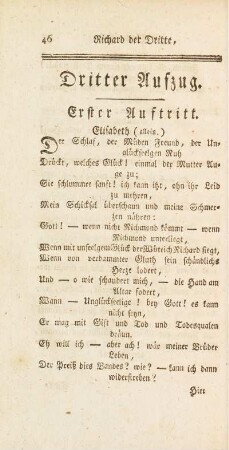 46 Richard der Dritte,
Dritter Aufzug.
Erster Auftritt.
Elisabeth (allein.)
Der Schlaf, der Müden Freund, der Un-
glückseelgen Ruh
Drückt, welches Glück! einmal der Mutter Au-
ge zu;
Sie schlummer sanft! ich kann ihr, ohn ihr Leid
zu mehren,
Mein Schicksal überschaun und meine Schmer-
zen nähren:
Gott! — wenn nicht Richmond kömmt — wenn
Richmond unterliegt,
Wenn mit unseeligem Glück der Wütrich Richard siegt,
Wenn von verdammter Gluth sein schändlichs
Herze lodert,
Und — o wie schaudert mich, — die Hand am
Altar fodert,
Wann — Unglückseelige! bey Gott! es kann
nicht seyn,
Er mag mit Gift und Tod und Todesqualen
dräun.
Eh will ich — aber ach! wär meiner Brüder
Leben,
Der Preiß dies Bandes? wie? — kann ich dann
widerstreben?
Hier